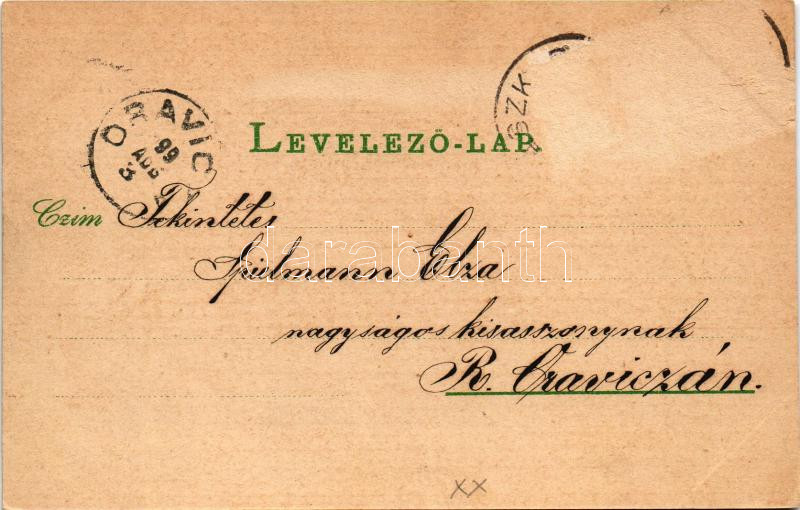 ORAVIC
99
AUG
3
SZK
LEVELEZŐ-LAP
Czim Tekintetes
Spielmann Elza
nagyságos kisasszonynak
R. Oraviczán.
darabanth
XX